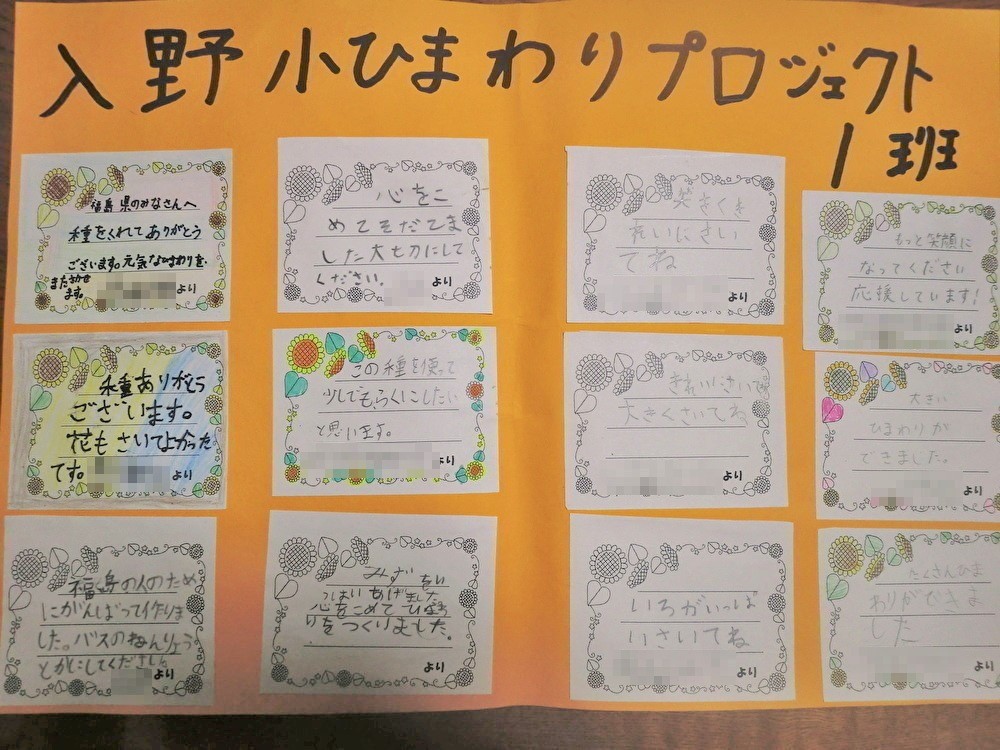 入野小ひまわりプロジェクト
1班
福島県のみなさんへ
種をくれてありがとう
ございます。元気なひまわりを
またさかせ
ます。
より
心をこ
めてそだてま
した大切にして
ください。
より
笑きくき
れいにさい
てね
より
もっと笑顔に
なってください
応援しています!
より
種ありがとう
ございます。
花もさいてよかった
です。
より
この種を使って
少しでも、らくにしたい
と思います。
より
きれいにさいてね
大きくさいてね
より
大きい
ひまわりが
できました。
より
福島の人のため
にがんばって作りま
した。バスのねんりょう
とかにしてください。
より
みずをい
っぱいあげました
心をこめてひまわ
りをつくりました。
より
いろがいっぱ
いさいてね
より
たくさんひま
わりができま
した
より